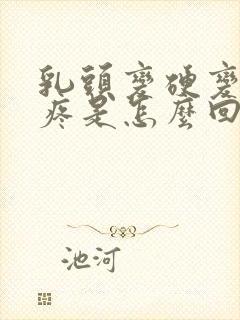 乳頭變硬變
疼是怎麼回
池河